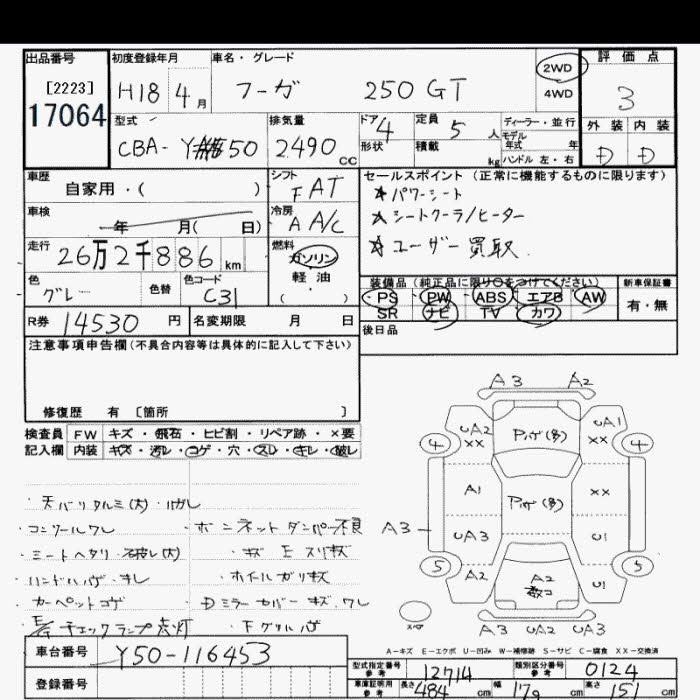 出品番号
[2223]
17064
初度登録年月
H18 4月
車名・グレード
フーガ 250 GT
2WD
4WD
評価点
3
外装 内装
D D
型式
CBA-Y 50
排気量
2490 cc
ドア 4
形状
定員 5 人
積載 kg
ディーラー・並行
モデル
年式 年
ハンドル 左・右
車歴
自家用・( )
シフト
FAT
セールスポイント(正常に機能するものに限ります)
★パワーシート
★シートクーラ/ヒーター
★ユーザー買取.
車検
年 月( 日)
冷房
A A/C
走行
26万2千886 km
燃料
ガソリン
軽油
( )
色
グレー
色替
色コード
C31
装備品(純正品に限り○をつけてください)
PS PW ABS エアB AW
SR ナビ TV カワ
新車保証書
有・無
R券 14530 円
名変期限 月 日
後日品
注意事項申告欄(不具合内容等は具体的に記入して下さい)
修復歴 有 [箇所 ]
検査員 FW キズ・飛石・ヒビ割・リペア跡・×要
記入欄 内装 キズ・汚レ・コゲ・穴・スレ・キレ・破レ
・天バリタルミ(大)・ハガレ
・コンソールワレ ・ボンネットダンパー不良
・シートヘタリ・破レ(大) ・キズ エ スリキズ
・ハンドルハゲ・キレ ・ホイールガリキズ
・カーペットコゲ ・Dミラーカバーキズ、ワレ
・チェックランプ点灯 ・下グリルハゲ
A3 A2
UA2 ××
Pハゲ(多)
UA1 ××
4 4
A1
Pハゲ(多)
××
A3
UA3
U1
5 5
A2
A2
数コ
U1
A3 UA2 UA3
A-キズ E-エクボ U-凹み W-補修跡 S-サビ C-腐食 XX-交換済
車台番号 Y50-116453
登録番号
型式指定番号 参考 12714
類別区分番号 参考 0124
車庫証明用 参考 長さ 484 cm 幅 179 cm 高さ 151 cm